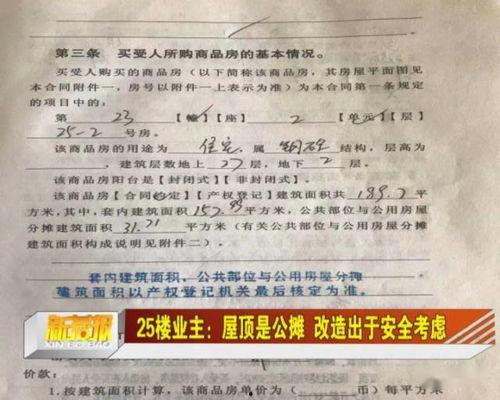 第三条 买受人所购商品房的基本情况。
买受人购买的商品房（以下简称该商品房，其房屋平面图见
本合同附件一，房号以附件一上表示为准）为本合同第一条规定
的项目中的：
第 23 【幢】【座】 2 【单元】【层】
25-2 号房。
该商品房的用途为 住宅 属 钢砼 结构，层高为
，建筑层数地上 27 层，地下 2 层。
该商品房阳台是【封闭式】【非封闭式】。
该商品房【合同约定】【产权登记】建筑面积共 189.7 平
方米，其中，套内建筑面积 157.99 平方米，公共部位与公用房屋
分摊建筑面积 31.71 平方米（有关公共部位与公用房屋分摊
建筑面积构成说明见附件二）。
套内建筑面积、公共部位与公用房屋分摊
建筑面积以产权登记机关最后核定为准。
新播报
XIN BO BAO
25楼业主：屋顶是公摊 改造出于安全考虑
价款：
1.按建筑面积计算，该商品房单价为（ 币）每平方米